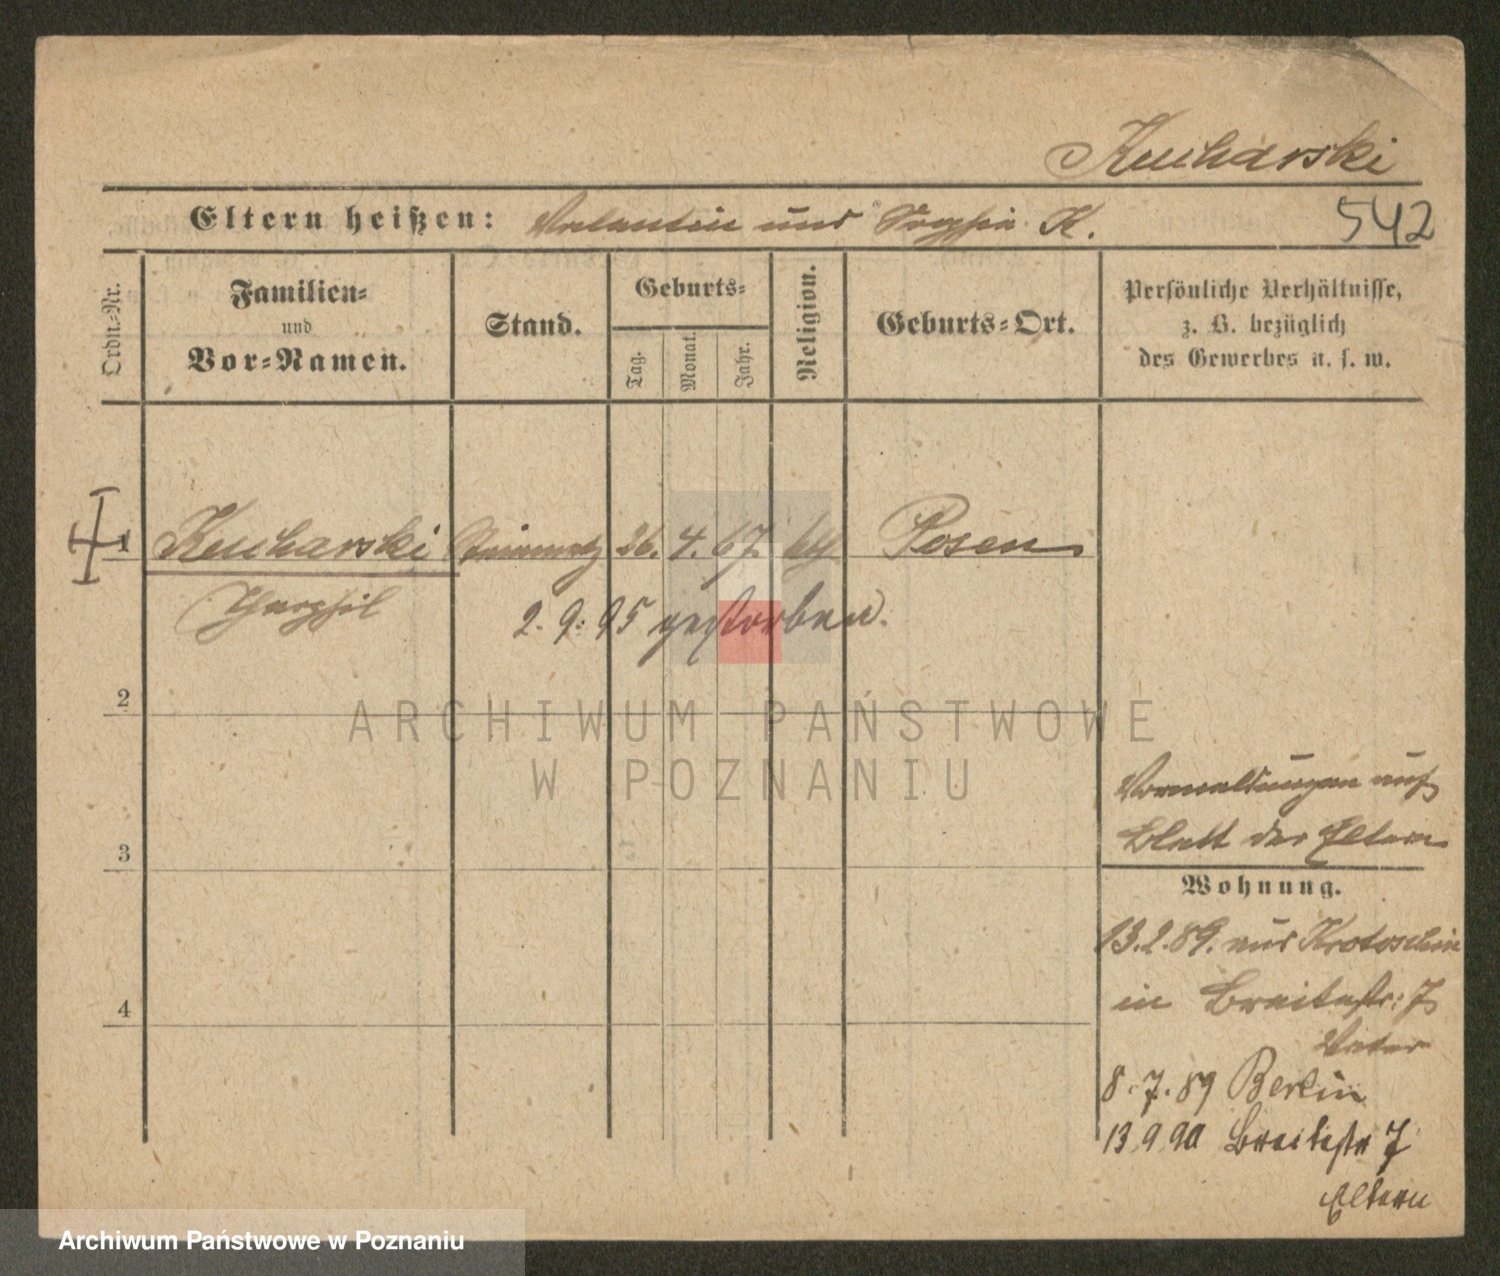 Kucharski
Eltern heißen: Valentin und Sophia K.
542
Ordn.-Nr.
Familien-
und
Vor-Namen.
Stand.
Geburts-
Tag.
Monat.
Jahr.
Religion.
Geburts-Ort.
Persönliche Verhältnisse,
z. B. bezüglich
des Gewerbes u. s. w.
1 Kucharski Steinmetz 26. 4. 67. Posen
2. 9. 95 gestorben.
2
3
4
Vormeldungen auf
Blatt der Eltern
Wohnung.
13.2.89. aus Krotoschin
in Breitestr: 7
Vater
8.7.89 Berlin
13.9.90 Breitestr 7
Eltern
ARCHIWUM PAŃSTWOWE
W POZNANIU
Archiwum Państwowe w Poznaniu